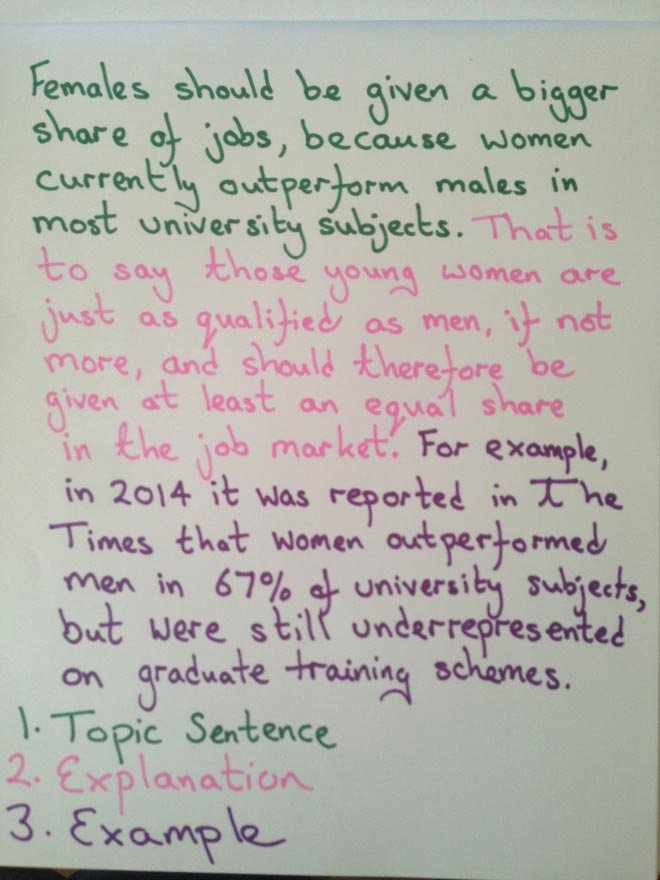 Females should be given a bigger
share of jobs, because women
currently outperform males in
most university subjects. That is
to say those young women are
just as qualified as men, if not
more, and should therefore be
given at least an equal share
in the job market. For example,
in 2014 it was reported in The
Times that women outperformed
men in 67% of university subjects,
but were still underrepresented
on graduate training schemes.
1. Topic Sentence
2. Explanation
3. Example